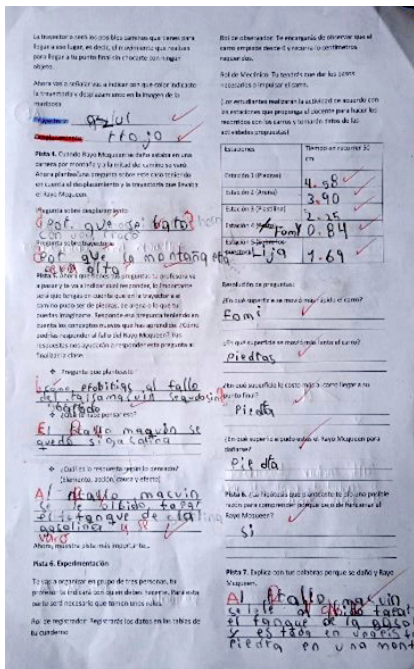 La trayectoria será los posibles caminos que tienes para
llegar a ese lugar, es decir, el movimiento que realizas
para llegar a tu punto final sin chocarte con ningún
objeto.
Ahora vas a señalar vas a indicar con que color indicaste
la trayectoria y desplazamiento en la imagen de la
mariposa
azul
Desplazamiento rrojo
Pista 4. Cuando Rayo Mcqueen se daño estaba en una
carrera por montaña y a la mitad del camino se varó.
Ahora plantea una pregunta sobre este caso teniendo
en cuenta el desplazamiento y la trayectoria que llevaba
el Rayo Mcqueen.
Pregunta sobre desplazamiento
¿Por que se
Pregunta sobre trayectoria
¿Por que la montaña
alta?
Pista 5. Ahora que tienes las preguntas tu profesora va
a pasar y te va a indicar cual responder, lo importante
será que tengas en cuenta que en la trayectoria el
camino pudo ser de piedras, de arena o lo que tú
puedas imaginarte. Responde esa pregunta teniendo en
cuenta los conceptos nuevos que has aprendido. ¿Cómo
podrías responder al fallo del Rayo Mcqueen? Tus
respuestas nos ayudarán a responder esta pregunta al
finalizar la clase.
❖ Pregunta que planteaste
al fallo
del
❖ ¿Qué te hace pensar eso?
El
quedo sin gasolina
❖ ¿Cuál es la respuesta según lo pensado?
(Elemento, acción, causa y efecto)
Al
se le
tanque de
gasolina y se
varo
Ahora, nuestra pista más importante…
Pista 6. Experimentación
Te vas a organizar en grupo de tres personas, tu
profesor te indicará con quien debes hacerte. Para esta
parte será necesario que tomen unos roles.
Rol de registrador: Registrarás los datos en las tablas de
tu cuaderno
Rol de observador: Te encargarás de observar que el
carro empiece desde 0 y recorra los centímetros
requeridos.
Rol de Mecánico: Tu tendrás que dar los pasos
necesarios o impulsar el carro.
(Los estudiantes realizarán la actividad de acuerdo con
las estaciones que proponga el docente para hacer los
recorridos con los carros y tomarán datos de las
actividades propuestas)
Estaciones Tiempo en recorrer 30 cm
Estación 1 (Piedras) 4.58
Estación 2 (Arena) 3.90
Estación 3 (Plastilina) 2.25
Estación 4 Fomi 0.84
Estación 5 Lija 1.69
Resolución de preguntas:
¿En qué superficie se movió más rápido el carro?
Fomi
¿En qué superficie se movió más lento el carro?
Piedras
¿En qué superficie le costó más al carro llegar a su
punto final?
Piedra
¿En qué superficie pudo estar el Rayo Mcqueen para
dañarse?
Piedra
Pista 6. ¿La hipótesis que planteaste te dio una posible
razón para comprender porque dejó de funcionar el
Rayo Mcqueen?
si
Pista 7. Explica con tus palabras porque se dañó y Rayo
Mcqueen.
Al
el tanque de la
piedra en una